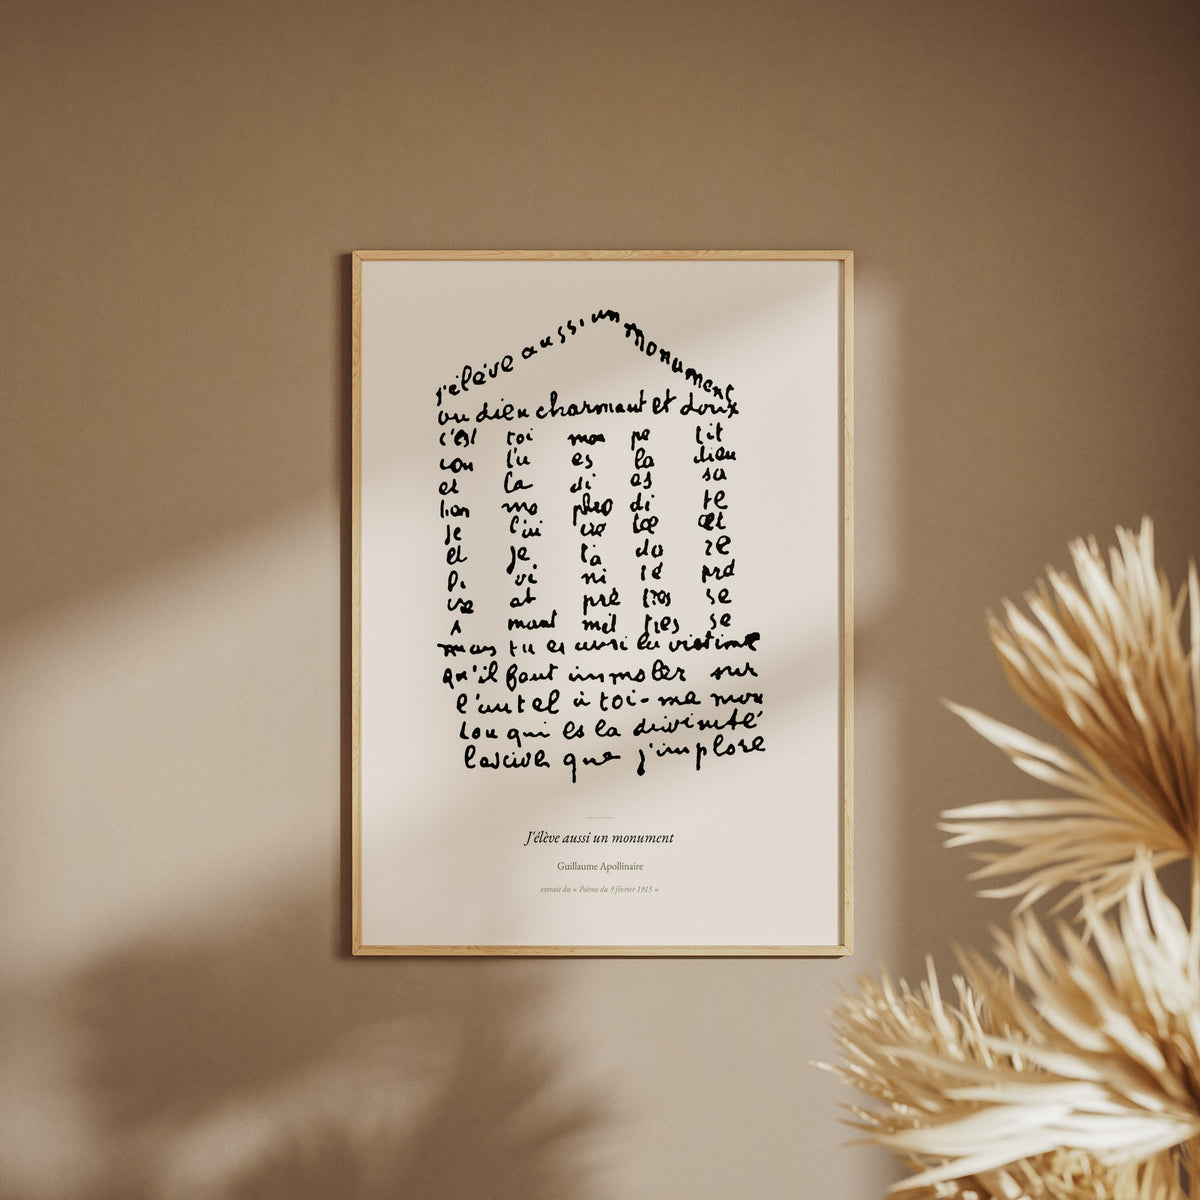 j'élève aussi un monument
au dieu charmant et doux
c'est toi mon pe tit
Lou tu es la dieu
et la di es sa
mo phro di te
Je
et je t'a do re
Di vi ni té pré
se
A mant se
mais tu es aussi la victime
qu'il faut immoler sur
l'autel à toi-me mon
Lou qui es la divinité
lascive que j'implore
J'élève aussi un monument
Guillaume Apollinaire
extrait du « Poème du 9 février 1915 »